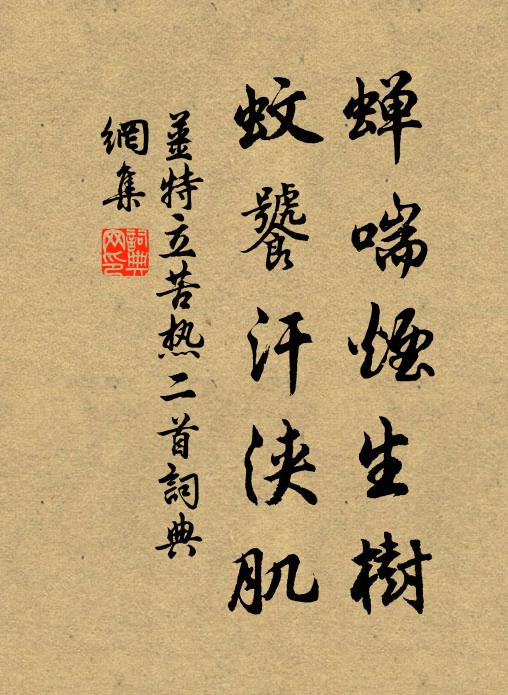 蝉喘煙生樹
蚊饕汗浹肌
姜特立苦热二首詞典
網集
詞典
网印